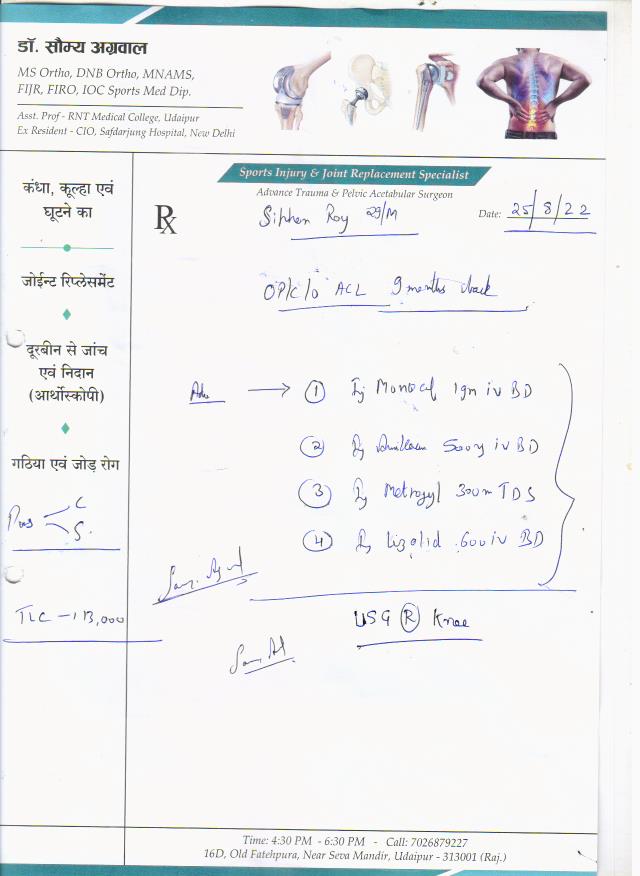 डॉ. सौम्य अग्रवाल
MS Ortho, DNB Ortho, MNAMS,
FIJR, FIRO, IOC Sports Med Dip.
Asst. Prof - RNT Medical College, Udaipur
Ex Resident - CIO, Safdarjung Hospital, New Delhi
Sports Injury & Joint Replacement Specialist
Advance Trauma & Pelvic Acetabular Surgeon
कंधा, कूल्हा एवं
घूटने का
जोईन्ट रिप्लेसमेंट
दूरबीन से जांच
एवं निदान
(आर्थोस्कोपी)
गठिया एवं जोड़ रोग
Pus C
S.
TLC - 113,000
Rx
Roy 29/M
Date: 25/8/22
OP/C/O ACL 9 months back
Adv → 1 Inj Monocef 1gm iv BD
2 Inj 500mg iv BD
3 Inj Metrogyl 300m TDS
4 Inj Lizolid 600 iv BD
USG R Knee
Time: 4:30 PM - 6:30 PM - Call: 7026879227
16D, Old Fatehpura, Near Seva Mandir, Udaipur - 313001 (Raj.)